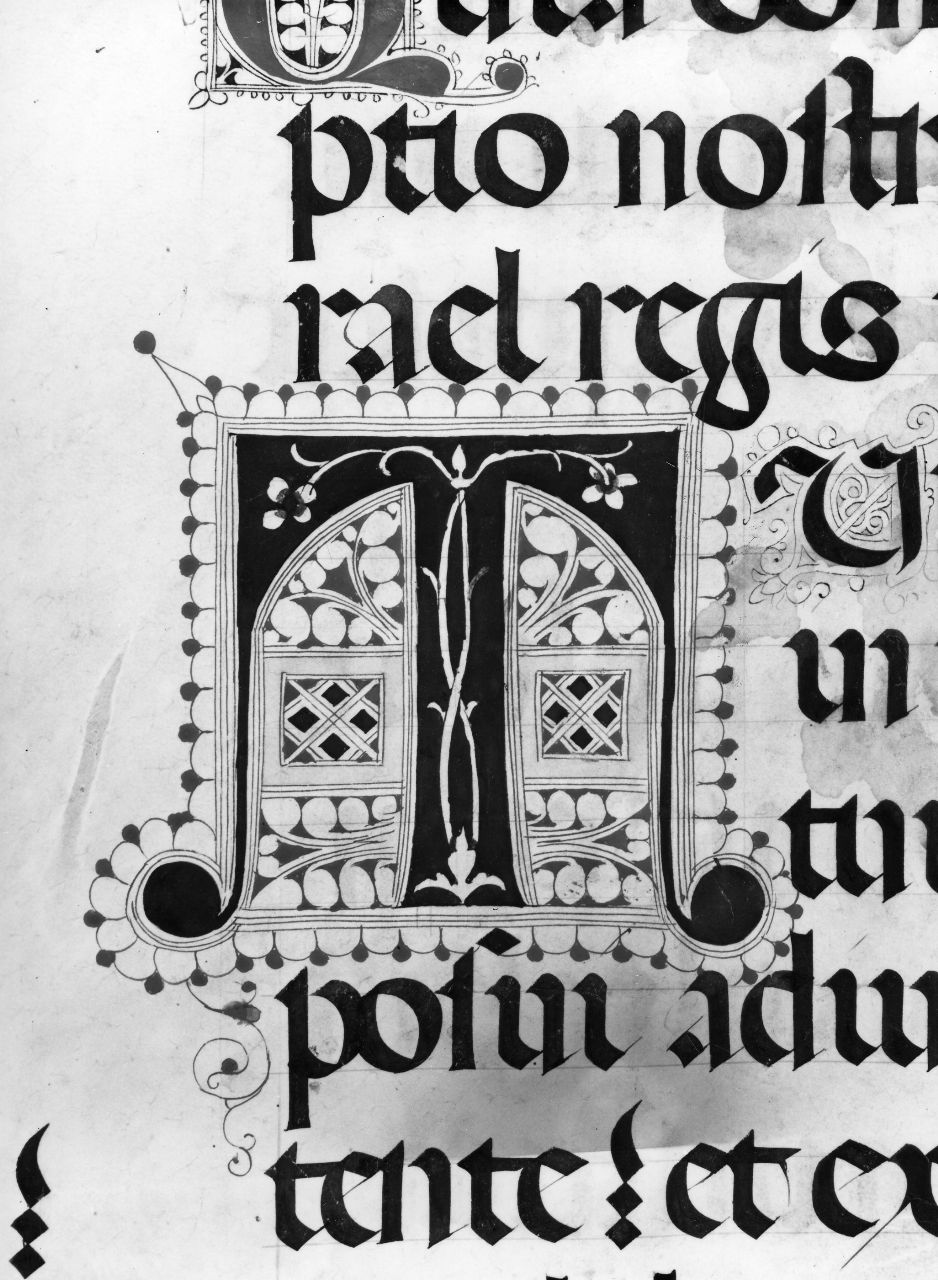 Quia dom
ptio noſtr
rael regis
TU
in
tui
poſui adiu
tente: et ex